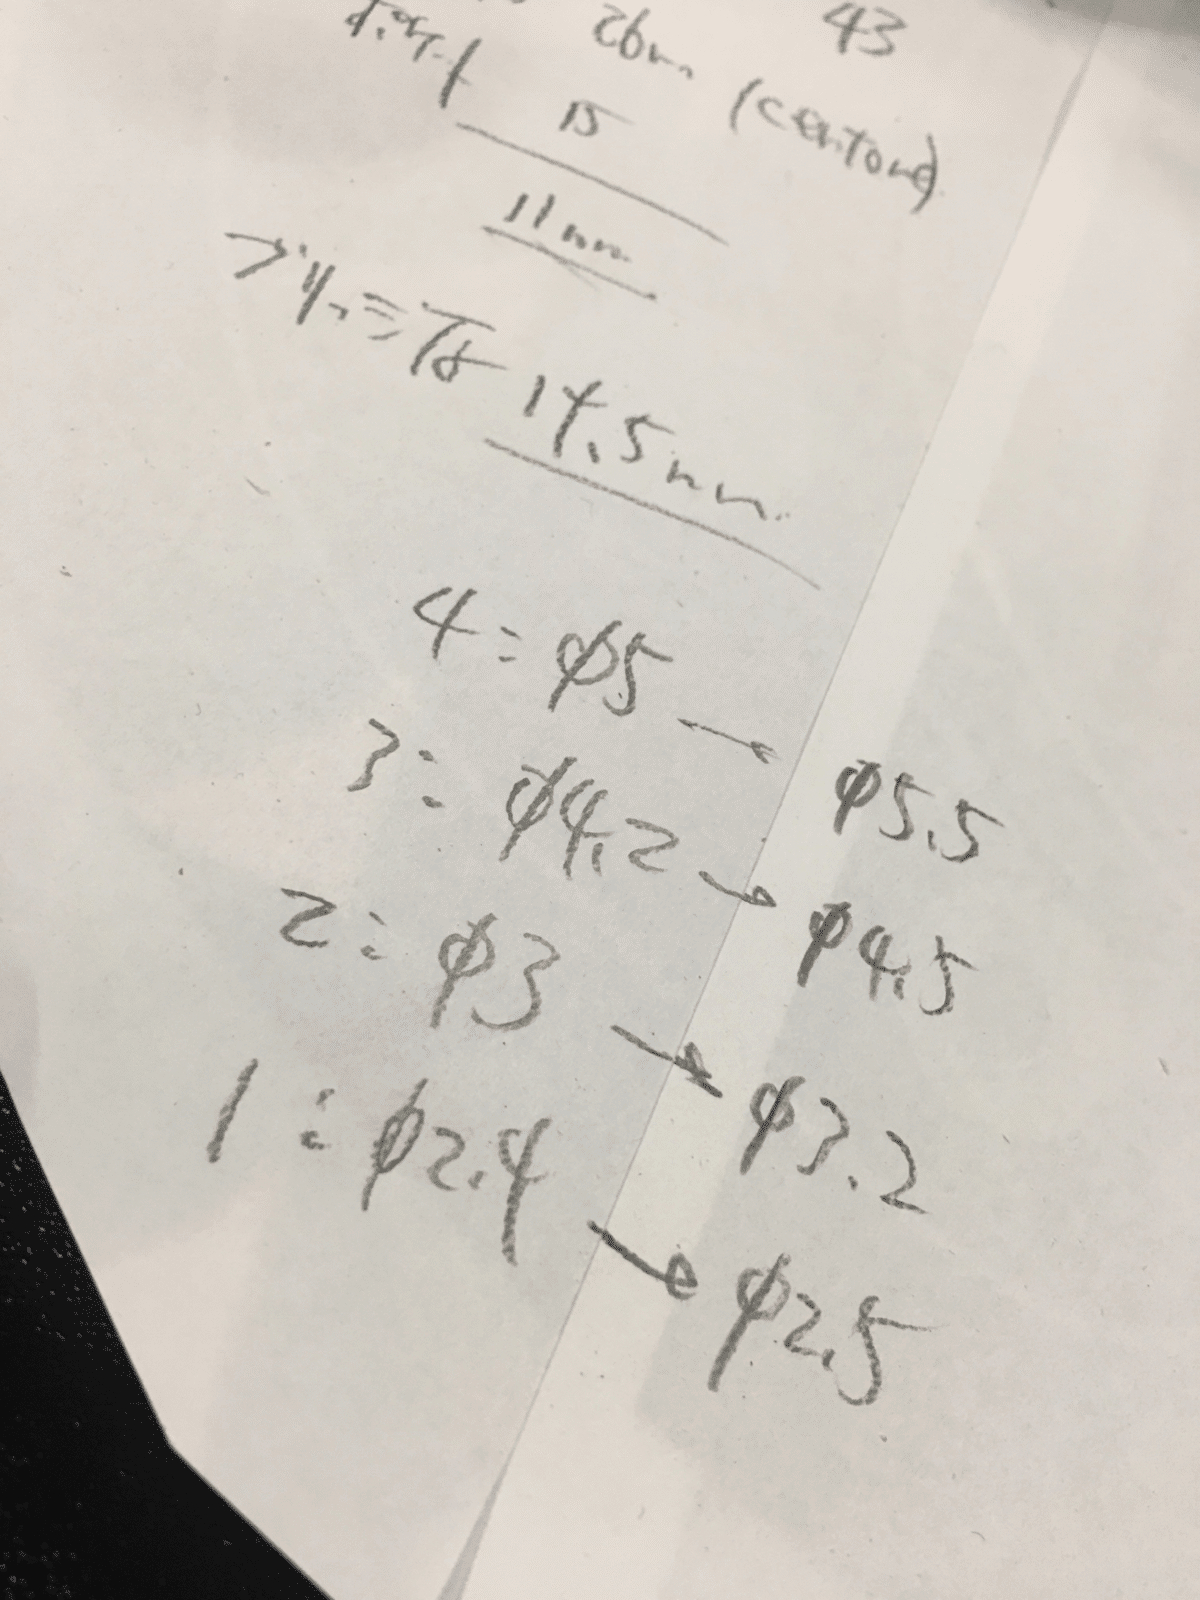 43
26mm (centone)
15
11mm
ブリッジ下 14.5mm
4: φ5 → φ5.5
3: φ4.2 → φ4.5
2: φ3 → φ3.2
1: φ2.4 → φ2.5